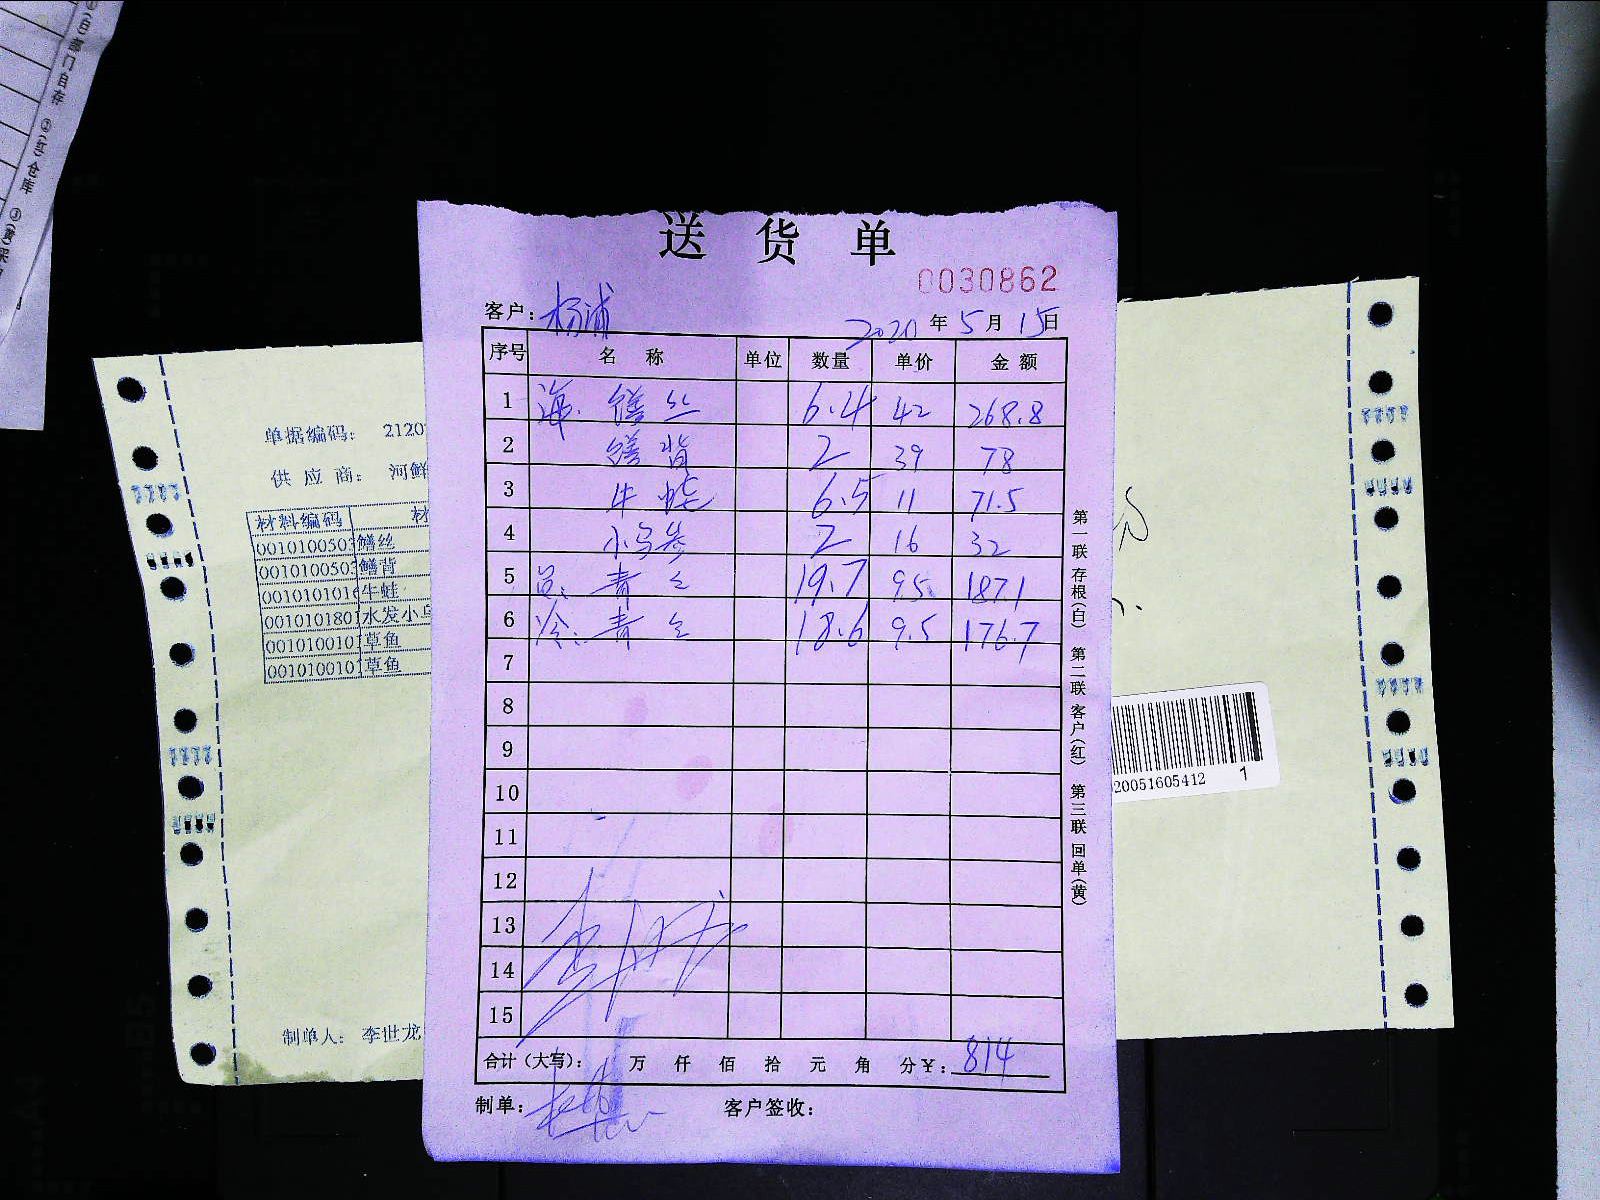 送 货 单
0030862
客户：杨浦 2020 年 5 月 15 日
序号 名 称 单位 数量 单价 金 额
1 海. 鳝 丝 6.4 42 268.8
2 鳝 背 2 39 78
3 牛 蛙 6.5 11 71.5
4 小乌参 2 16 32
5 青 仝 19.7 9.5 187.1
6 冷: 青 仝 18.6 9.5 176.7
7
8
9
10
11
12
13
14
15
合计（大写）： 万 仟 佰 拾 元 角 分￥：814
制单： 客户签收：
第一联 存根(白) 第二联 客户(红) 第三联 回单(黄)
单据编码： 2120
供 应 商： 河鲜
材料编码 材
0010100503 鳝丝
0010100503 鳝背
0010101016 牛蛙
0010101801 水发小乌
0010100101 草鱼
0010100101 草鱼
制单人： 李世龙
20051605412 1
部门自存 ②(红)仓库 ③(黄)采